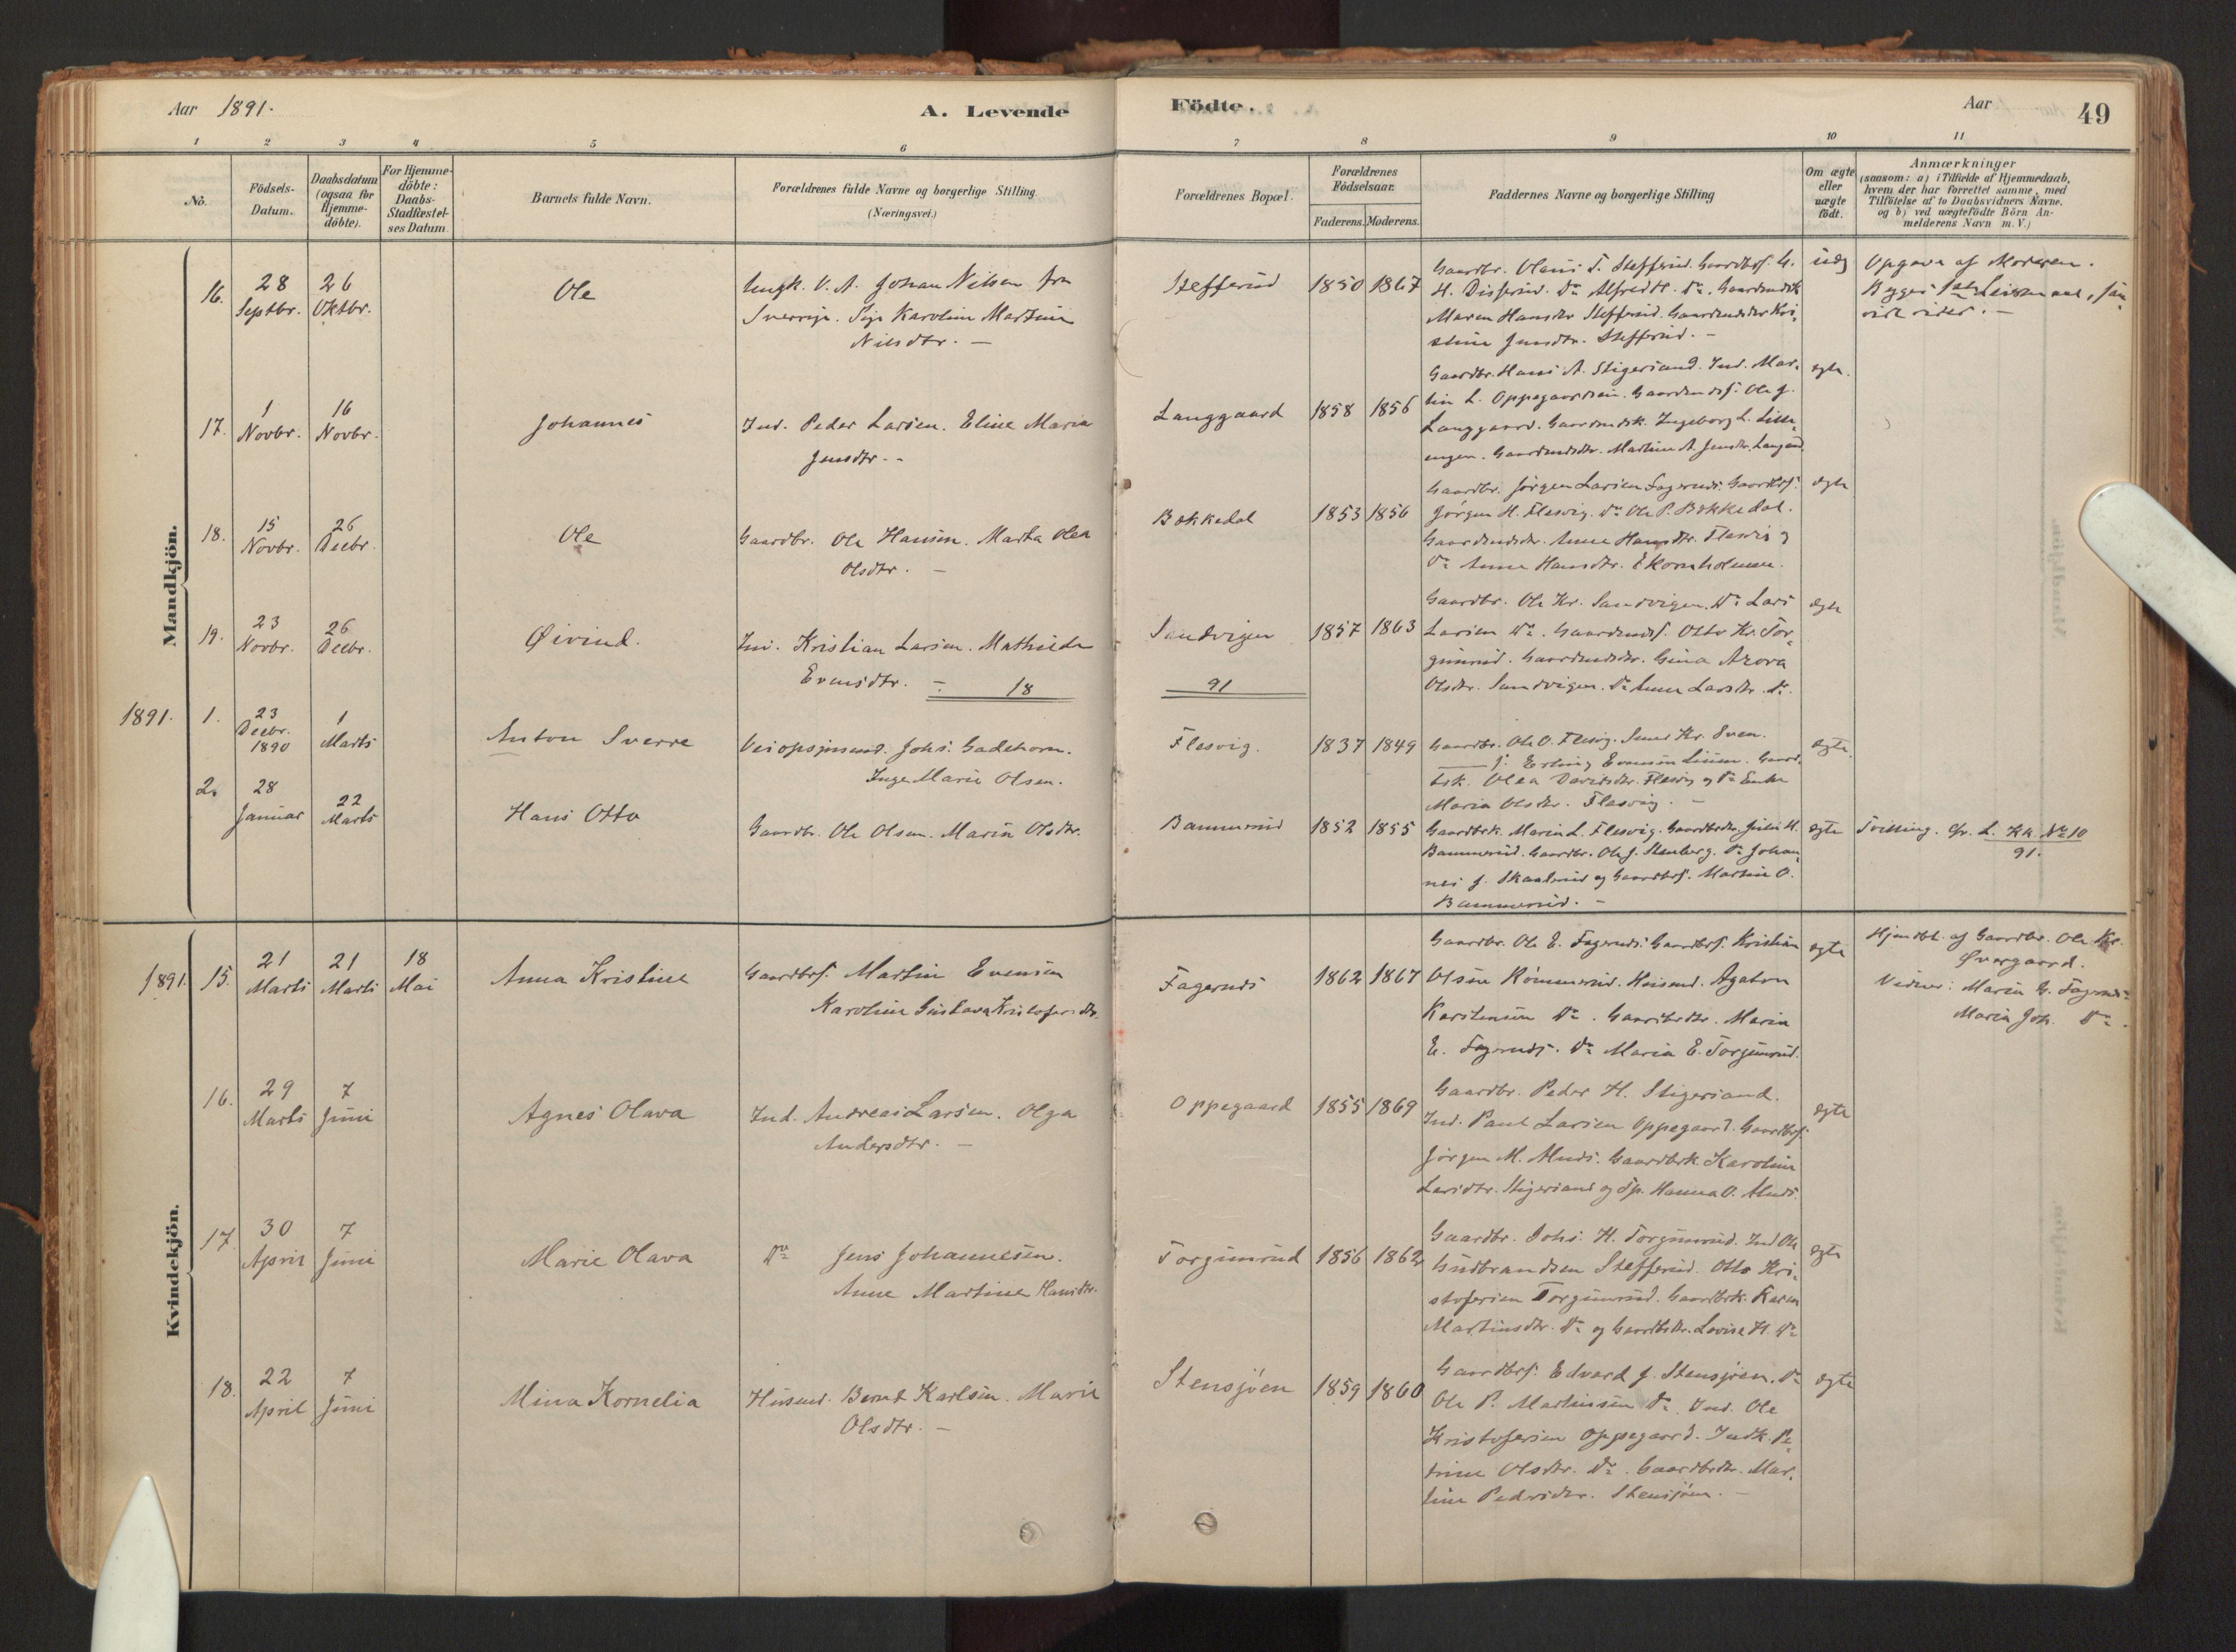 Aar 1891. A. Levende Födte. Aar 49
1 2 3 4 5 6 7 8 9 10 11
No.
Födsels-Datum.
Daabsdatum (ogsaa for Hjemme-döbte).
For Hjemme-döbte: Daabs-Stadfæstel-ses Datum
Barnets fulde Navn.
Forældrenes fulde Navne og borgerlige Stilling.
(Næringsvei.)
Forældrenes Bopæl.
Forældrenes Födselsaar.
Faderens. Moderens.
Faddernes Navne og borgerlige Stilling
Om ægte eller uægte födt.
Anmærkninger
(saasom: a) i Tilfælde af Hjemmedaab,
hvem der har forrettet samme, med
Tilföielse af to Daabsvidners Navne.
og b) ved uægtefödte Börn An-
melderens Navn m.V.)
Mandkjön.
16. 28 Septbr. 26 Oktbr. Ole
Ungk. V. A. Johan Nilsen fra
Sverrige. Pige Karoline Martine
Nilsdtr. —
Stefferud 1850 1867
Gaardbr. Olaus T. Stefferud. Gaardbrs. G.
H. Disserud. Do Alfred H. Do.
Maren Hansdtr Stefferud. Kri-
stine Jensdtr. Stefferud. —
uæg
Opgave af Moderen.
17. 1 Novbr. 16 Novbr. Johannes
Ind. Peder Larsen. Eline Maria
Jensdtr. -
Langgaard 1858 1856
Gaardbr. Hans A. Stigersand. Ind. Mar-
tin L. Oppegaardseie. Ole J.
Langgaard. Ingeborg L.
Martine A. Jensdtr.
ægte.
18. 15 Novbr. 26 Decbr. Ole
Gaardbr. Ole Hansen. Marta Olea
Olsdtr. —
Bækkedal 1853 1856
Gaardbr. Jörgen Larsen Fagernæs. Gaardbrs.
Jörgen H. Flesvig. Do Ole P. Bækkedal.
Anne Hansdtr. Flesvig
Do Anne Hansdtr. Ekornholmen.
ægte
19. 23 Novbr. 26 Decbr. Øivind.
Ind. Kristian Larsen. Mathilde
Evensdtr. — 18 91
Sandvigen 1857 1863
Gaardbr. Ole Kr. Sandvigen. Do Lars
Larsen Do. Otto Kr. Tor-
gunrud. Gina Azora
Olsdtr. Sandvigen. Do Anne Larsdtr. Do.
ægte
1891. 1. 23 Decbr. 1890 1 Marts Anton Sverre
Veiopsynsmd. Johs. Gadehorn.
Inge Marie Olsen.
Flesvig. 1837 1849
Gaardbr. Ole O. Flesvig.
Erling Evensen Gaard-
brk. Olea Davidsdtr. Flesvig og Do Enke
Maria Olsdtr. Flesvig. —
ægte.
2. 28 Januar 22 Marts Hans Otto
Gaardbr. Ole Olsen. Marie Olsdtr.
Bammerud 1852 1855
Gaardbrk. Marie L. Flesvig. Gaardbrdtr. Julie H.
Bammerud. Gaardbr. Ole J. Stenberg. Do Johan-
nes J. Skaalerud og Gaardbrs. Martin O.
Bammerud. —
ægte
Tvilling. cfr. L. Kk. No 10
91.
Kvindekjön.
1891. 15. 21 Marts 21 Marts 18 Mai Anna Kristine
Gaardbrs. Martin Evensen
Karoline Gustava Kristofersdtr.
Fagernæs 1862 1867
Gaardbr. Ole E. Fagernæs. Gaardbrs. Kristian
Olsen Römmerud. Husmd. Agaton
Karstensen Do. Gaardbrdtr. Maria
E. Fagernæs. Do Maria E. Torgunrud.
ægte
Hjemdbt. af Gaardbr. Ole Kr.
Øvergaard.
Vidner: Maria G. Fagernæs
Maria Joh. Do.
16. 29 Marts 7 Juni Agnes Olava
Ind. Andreas Larsen. Olga
Andersdtr. —
Oppegaard 1855 1869
Gaardbr. Peder H. Stigersand.
Ind. Paul Larsen Oppegaard. Gaardbrs.
Jörgen M. Alnæs. Gaardbrk. Karoline
Larsdtr. Stigersand og Sp. Hanna O. Alnæs.
ægte
17. 30 April 7 Juni Marie Olava
Do Jens Johannesen.
Anne Martine Hansdtr.
Torgunrud 1856 1862
Gaardbr. Johs. H. Torgunrud. Ind Ole
Gudbrandsen Stefferud. Otto Kri-
stofersen Torgunrud. Gaardbrk. Karen
Martinsdtr. Do og Gaardbrdtr. Lovise H. Do
ægte
18. 22 April 7 Juni Mina Kornelia
Husmd. Bernt Karlsen. Marie
Olsdtr. —
Stensjöen 1859 1860
Gaardbrs. Edvard J. Stensjöen. Do
Ole P. Martinsen Do. Ind. Ole
Kristofersen Oppegaard. Indk. Pe-
trine Olsdtr. Do. Gaardbrdtr. Mar-
tine Pedersdtr. Stensjöen. —
ægte